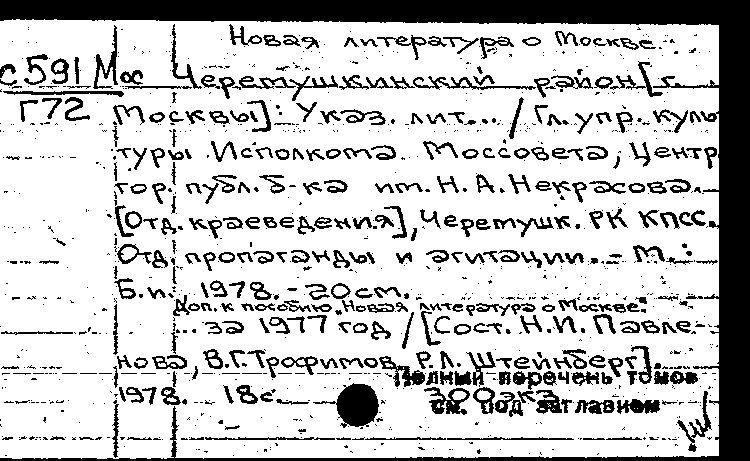 Новая литература о Москве.
С591 Мос Черемушкинский район [г.
Г72 Москвы]: Указ. лит... / Гл. упр. куль
туры Исполкома Моссовета, Центр.
гор. публ. б-ка им. Н. А. Некрасова.
[Отд. краеведения], Черемушк. РК КПСС.
Отд. пропаганды и агитации. - М.:
Б.и. 1978. - 20 см.
Доп. к пособию "Новая литература о Москве."
... за 1977 год / [Сост. Н. И. Павле-
нова, В. Г. Трофимов, Р. Л. Штейнберг].
Полный перечень томов
1978. 18 с. 300 экз
см. под заглавием